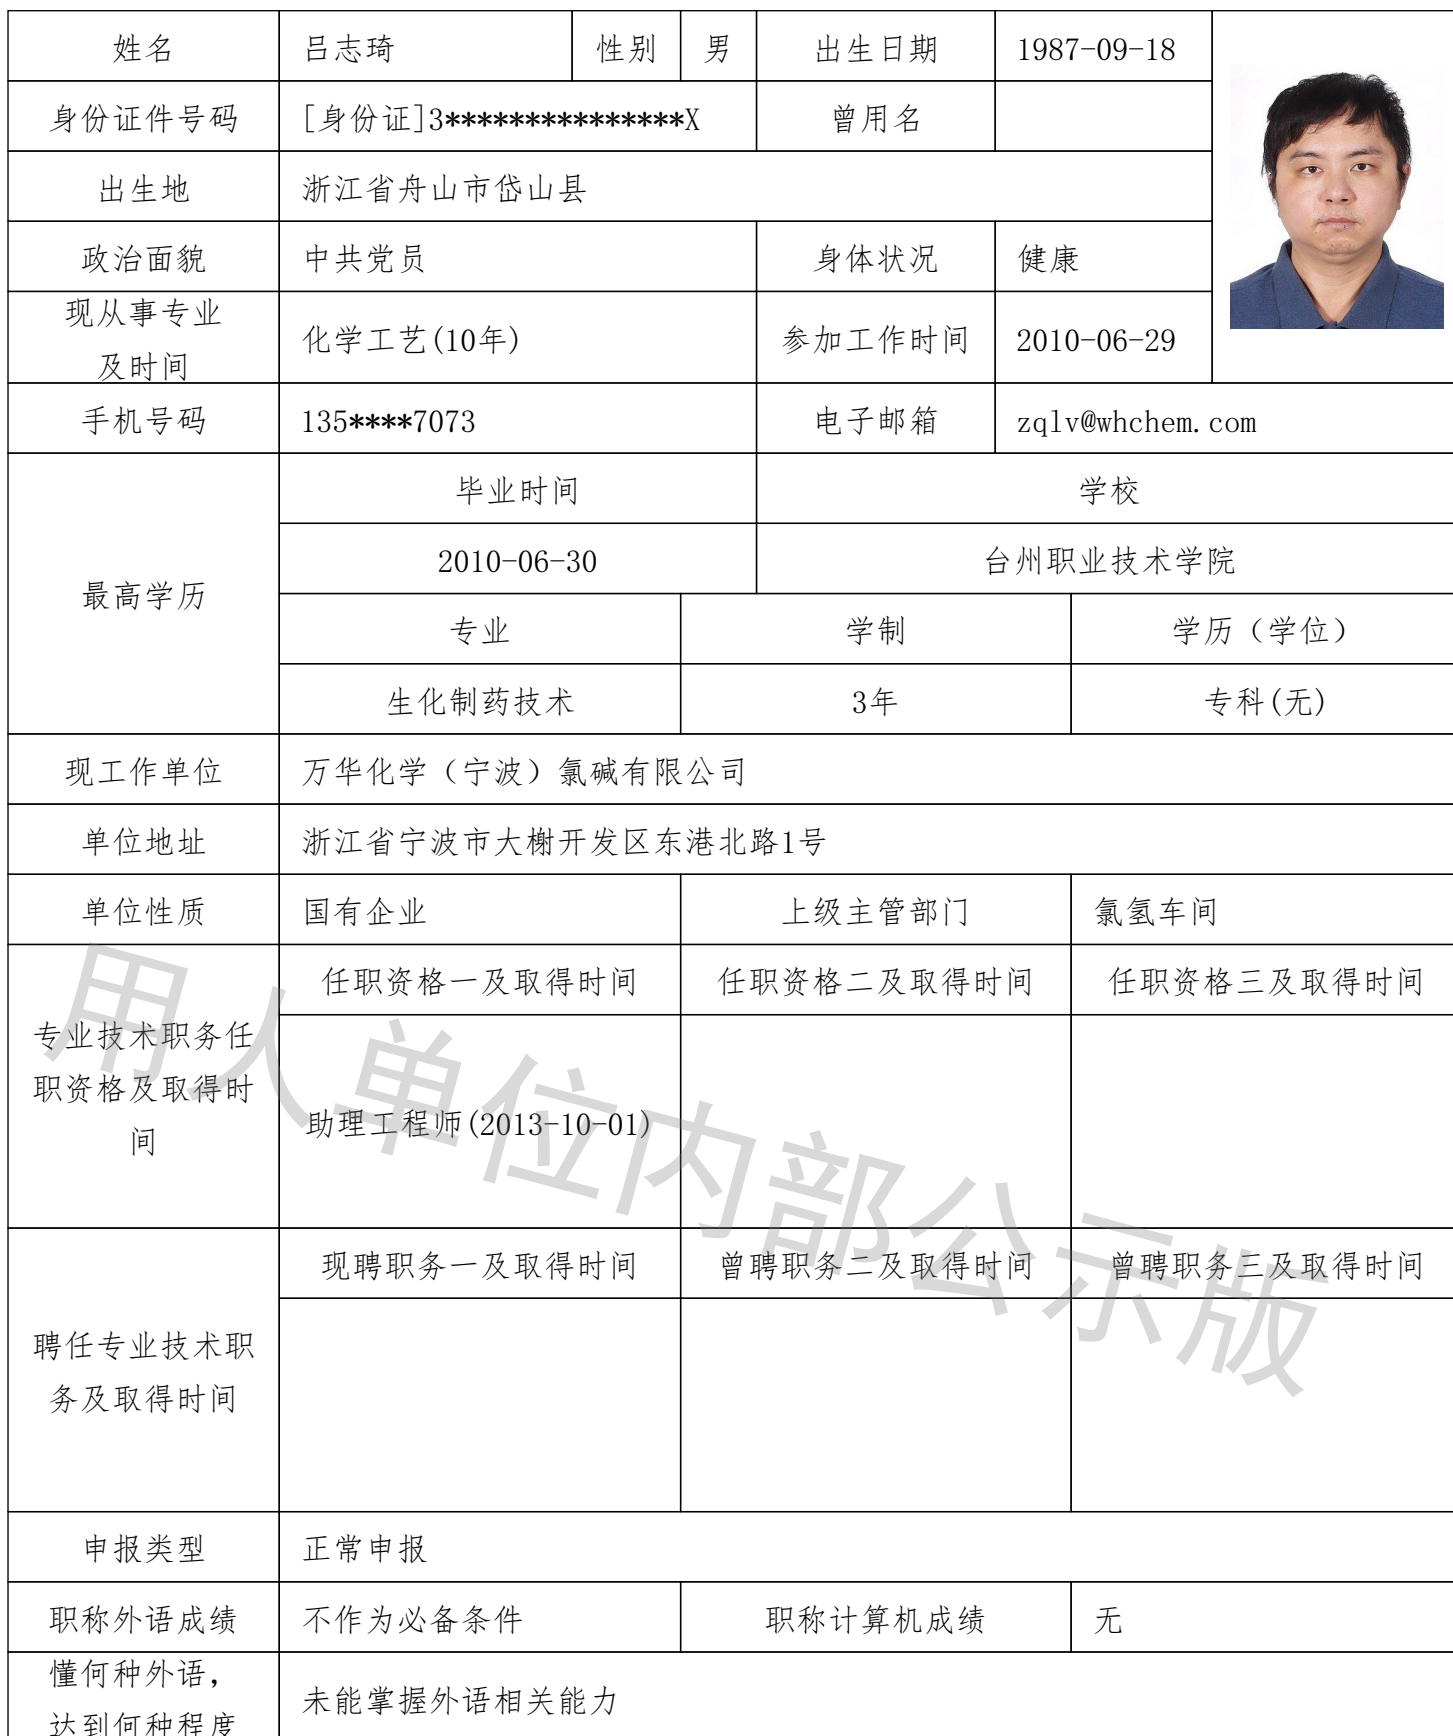 姓名 吕志琦 性别 男 出生日期 1987-09-18
身份证件号码 [身份证]3***************X 曾用名
出生地 浙江省舟山市岱山县
政治面貌 中共党员 身体状况 健康
现从事专业
及时间
化学工艺(10年) 参加工作时间 2010-06-29
手机号码 135****7073 电子邮箱 zqlv@whchem.com
最高学历
毕业时间 学校
2010-06-30 台州职业技术学院
专业 学制 学历（学位）
生化制药技术 3年 专科(无)
现工作单位 万华化学（宁波）氯碱有限公司
单位地址 浙江省宁波市大榭开发区东港北路1号
单位性质 国有企业 上级主管部门 氯氢车间
专业技术职务任
职资格及取得时
间
任职资格一及取得时间 任职资格二及取得时间 任职资格三及取得时间
助理工程师(2013-10-01)
聘任专业技术职
务及取得时间
现聘职务一及取得时间 曾聘职务二及取得时间 曾聘职务三及取得时间
申报类型 正常申报
职称外语成绩 不作为必备条件 职称计算机成绩 无
懂何种外语，
达到何种程度
未能掌握外语相关能力
用人单位内部公示版